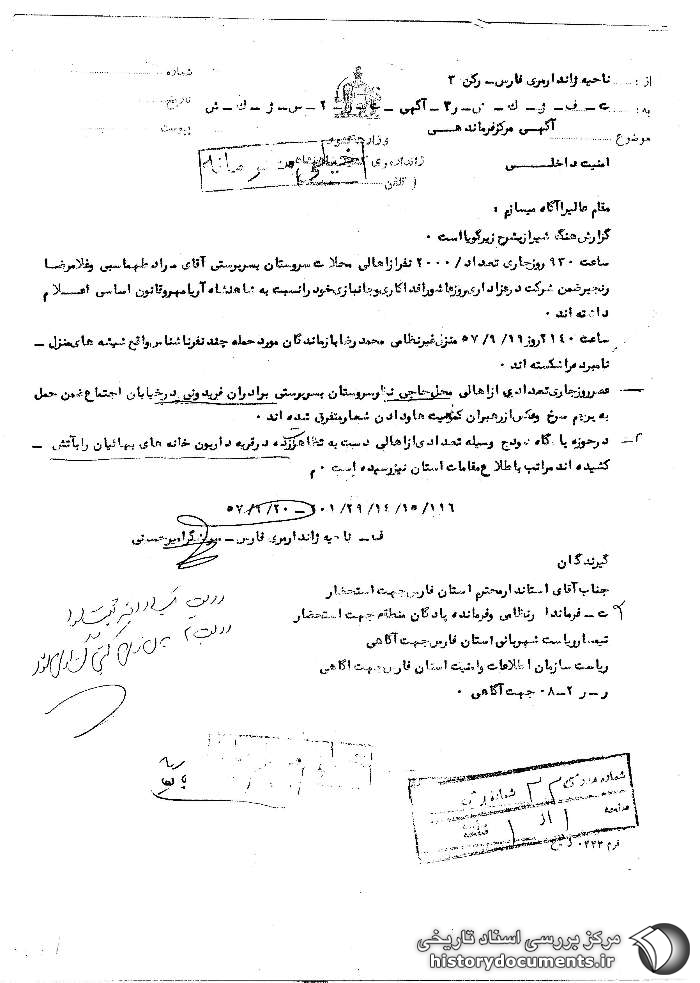 از : ناحیه ژاندارمری فارس ـ رکن ۳
شماره
به : ت ـ ف ـ و ـ ك ـ ش ـ ر۳ ـ آگهی ـ ۲ ـ س ـ و ـ ك ـ ش
تاریخ
آگهی مرکز فرماندهی
پیوست
موضوع
امنیت داخلی
خیلی محرمانه
تلفن
مقام عالیرا آگاه میسازم :
گزارش هنگ شیراز بشرح زیر گویا است ۰
ساعت ۹۳۰ روز جاری تعداد / ۲۰۰۰ نفر از اهالی محلات سروستان بسرپرستی آقای مراد طهماسبی و غلامرضا
رنجبر ضمن شرکت در عزاداری روز عاشورا فداکاری و جانبازی خود را نسبت به شاهنشاه آریامهر و قانون اساسی اعلام
داشته اند ۰
ساعت ۲۱۴۰ روز ۵۷/۹/۱۹ منزل غیرنظامی محمد رضا بازماندگان مورد حمله چند نفر ناشناس واقع شیشه های منزل ـ
نامبرده را شکسته اند ۰
عصر روز جاری تعدادی از اهالی محل حاجی سروستان بسرپرستی برادران فریدونی در خیابان اجتماع ضمن حمل
پرچم سرخ وعکس از رهبران کمونیست ها و دادن شعار متفرق شده اند ۰
۲ـ در حوزه پاسگاه نمودج وسیله تعدادی از اهالی دست به تظاهر زده در قریه داریون خانه های بهائیان را بآتش ـ
کشیده اند مراتب باطلاع مقامات استان نیز رسیده است ۰ م
۵۷/۹/۲۰ ـ ۲۰۱/۲۹/۱۴/۱۵/۱۱۶
ف ـ ناحیه ژاندارمری فارس ـ
گیرندگان
جناب آقای استاندار محترم استان فارس جهت استحضار
ت ـ فرماندار نظامی و فرمانده پادگان منطقه جهت استحضار
تیمسار ریاست شهربانی استان فارس جهت آگاهی
ریاست سازمان اطلاعات و امنیت استان فارس جهت آگاهی
ر ـ ر ۲ ـ ۰۸ جهت آگاهی ۰
شماره
صفحه ۱ از ۱ صفحه
فرم ۰۳۲۳
مرکز بررسی اسناد تاریخی
historydocuments.ir